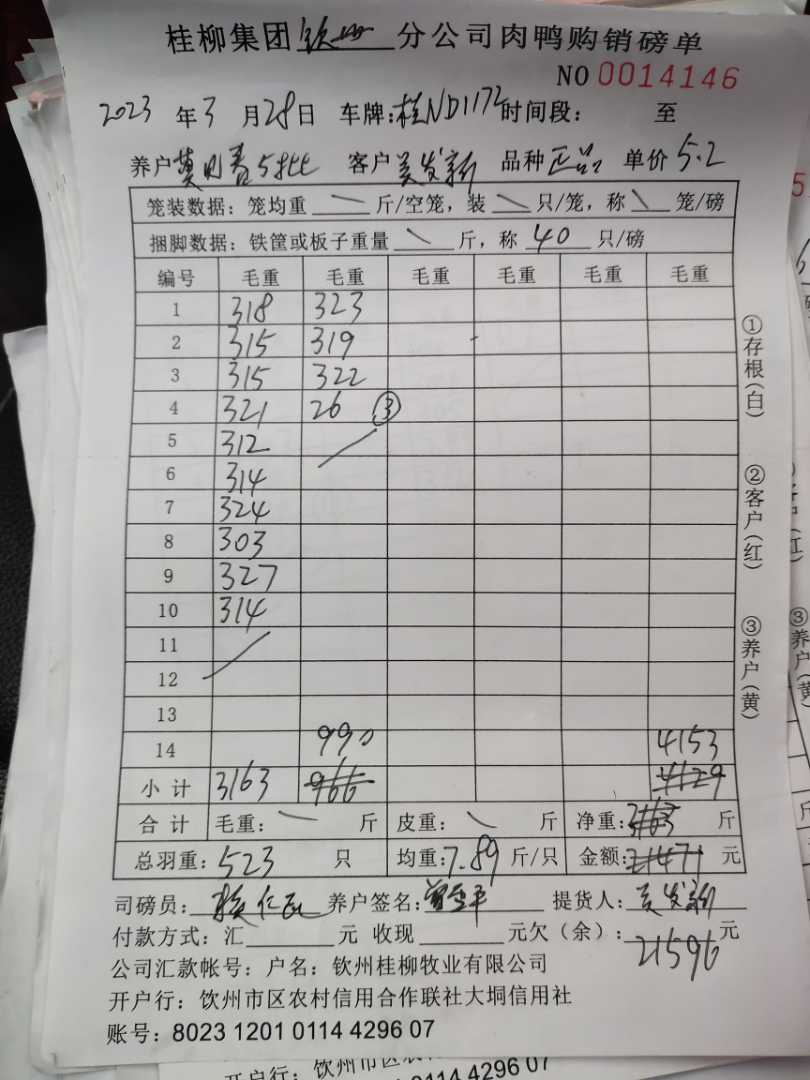 桂柳集团钦州分公司肉鸭购销磅单
NO 0014146
2023 年 3 月 28 日 车牌:桂ND1172 时间段: 至
养户 5批 客户 吴发新 品种 正品 单价 5.2
笼装数据: 笼均重 \ 斤/空笼, 装 \ 只/笼, 称 \ 笼/磅
捆脚数据: 铁筐或板子重量 \ 斤, 称 40 只/磅
编号 毛重 毛重 毛重 毛重 毛重 毛重
1 318 323
2 315 319
3 315 322
4 321 26 ③
5 312
6 314
7 324
8 303
9 327
10 314
11
12
13
14 990 4153
小 计 3163 966 4129
合 计 毛重: \ 斤 皮重: \ 斤 净重: 斤
总羽重: 523 只 均重: 7.89 斤/只 金额: 21471 元
司磅员: 养户签名: 提货人: 吴发新
付款方式: 汇 元 收现 元欠(余): 21596 元
公司汇款帐号: 户名: 钦州桂柳牧业有限公司
开户行: 钦州市区农村信用合作联社大垌信用社
账号: 8023 1201 0114 4296 07
①存根(白)
②客户(红)
③养户(黄)
开户行: 钦州市区农
0114 4296 07